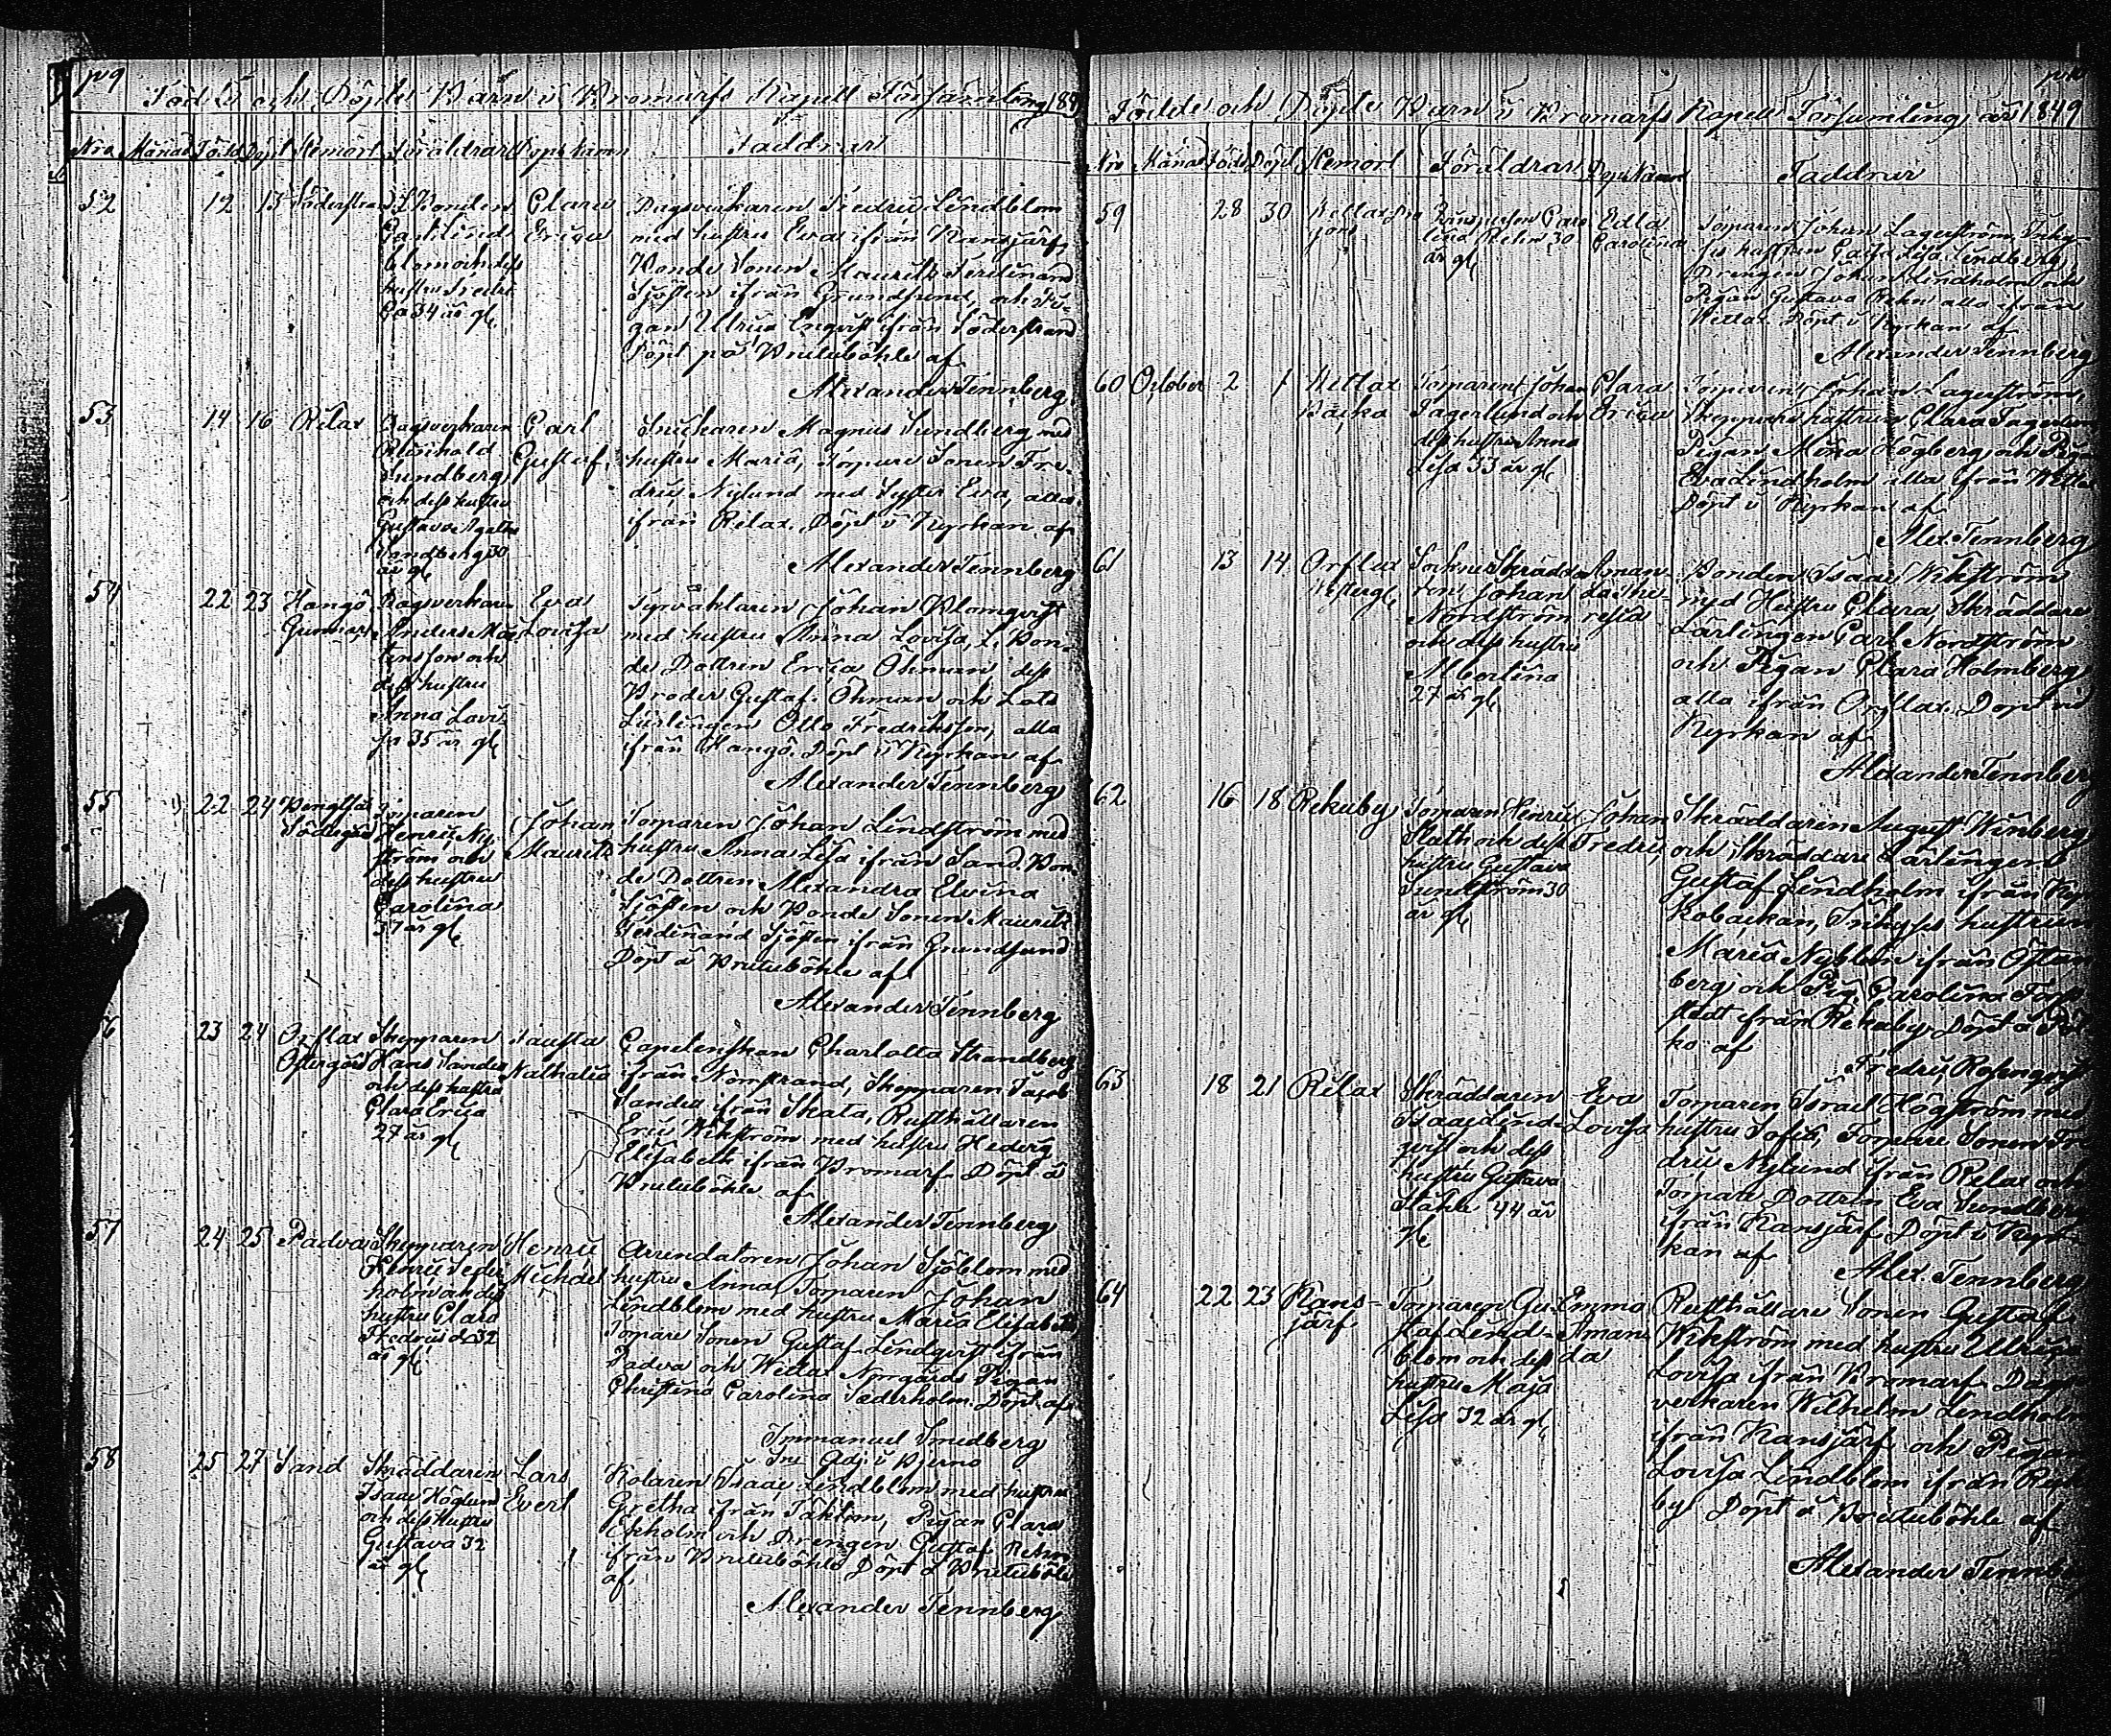 Födde och Döpte Barn i Bromarfs Kapell Församling
Nro Månad Född Döpt Hemort Föräldrar Dopnamn Faddrar
52 12 13 Söderstrand
Clara
Erica
Dagsverkaren Fredric Lindblom
med hustru Eva ifrån Kansjärf,
Bonde Sonen Mauritz Ferdinand
Sjösten ifrån Grundsund, och Pi-
gan Ulrica Enqvist ifrån Söderstrand
Döpt på Bruteböhle af
Alexander Tennberg
53 14 16 Rilax
Dagsverkaren
Sundberg
och dess hustru
Sandberg 30
år gl.
Carl
Gustaf
Snickaren Magnus Sundberg med
hustru Maria, Torpare Sonen Fre-
dric Nylund med Syster Eva, alla
ifrån Rilax. Döpt i Kyrkan af
Alexander Tennberg
54 22 23 Hangö
Dagsverkare
Anders Mår-
tensson och
dess hustru
Anna Lovi-
sa 35 år gl.
Eva
Lovisa
Fyrvaktaren Johan Blomqvist
med hustru Anna Lovisa, L. Bon-
de Dottren Erica Öhman, dess
Broder Gustaf Öhman och Lots
Lärlingen Otto Fredriksson, alla
ifrån Hangö. Döpt i Kyrkan af
Alexander Tennberg
55 22 24
Torparen
Henric Ny-
ström och
dess hustru
Carolina
37 år gl.
Johan
Mauritz
Torparen Johan Lindström med
hustru Anna Lisa ifrån Sand. Bon-
de Dottren Alexandra Elvina
Sjösten och Bonde Sonen Mauritz
Ferdinand Sjösten ifrån Grundsund
Döpt å Bruteböhle af
Alexander Tennberg
6 23 24 Orslax
Östergård
Skepparen
Hans Sandell
och dess hustru
Clara Erica
27 år gl.
Fausta
Nathalia
Capellenskan Charlotta Strandberg
ifrån Nomstrand, Skepparen Jacob
Sandell ifrån Skata, Rusthållaren
Eric Wikström med hustru Hedvig
Elisabeth ifrån Bromarf. Döpt å
Bruteböhle af
Alexander Tennberg
57 24 25 Padva
Skepparen
Henric Seder-
holm och dess
hustru Clara
Fredrica 32
år gl.
Henric
Michael
Arrendatoren Johan Sjöblom med
hustru Anna, Torparen Johan
Lindblom med hustru Maria Elisabeth
Torpare Sonen Gustaf Lindqvist ifrån
Padva och Norrgårds Pigan
Christina Carolina Söderholm. Döpt af
Immanuel Smedberg
Adj. i Bjerno
58 25 27 Sand
Skräddaren
Isaac Höglund
och dess hustru
Gustava 32
år gl.
Lars
Evert
Kolaren Isaac Lindblom med hustru
Gretha ifrån Täktom, Pigan Clara
Ekholm och Drengen Gustaf Rehn
ifrån Bruteböhle Döpt å Bruteböhle
af
Alexander Tennberg
Födde och Döpte Barn i Bromarfs Kapell Församling år 1849
Nro Månad Född Döpt Hemort Föräldrar Dopnamn Faddrar
59 28 30
Rehn 30
år gl.
Edla
Carolina
Torparen Johan Lagerström,
Cajsa Lisa Lindberg,
Drengen Johan Lindholm och
Pigan Gustava Rehn alla ifrån
Kettax Döpt i Kyrkan af
Alexander Tennberg
60 October 2 Kettax
Backa
Torparen Johan
Fagerlund och
dess hustru Anna
Lisa 33 år gl.
Clara
Erica
Torparen Johan Lagerström,
hustrun Clara Fagerlund
Pigan Mina Högberg och Pigan
Eva Lindholm alla ifrån Kettax
Döpt i Kyrkan af
Alex. Tennberg
61 13 14 Orslax
Westergd.
Sockne Skrädda-
ren Johan
Nordström
och dess hustru
Albertina
27 år gl.
Aman-
da The-
resia
Bonden Isaac Wikström
med Hustru Clara, Skräddare
Lärlingen Carl Nordström
och Pigan Clara Holmberg
alla ifrån Orslax. Döpt i
Kyrkan af
Alexander Tennberg
62 16 18 Rekuby
Torparen Henric
Slath och dess
hustru Gustava
Sundström 30
år gl.
Johan
Fredric
Skräddaren August Winberg
och Skräddare Lärlingen
Gustaf Lindholm ifrån Kyr-
kobackan, Inhyses hustrun
Maria Nyblom ifrån Östan-
berg och Pig. Carolina
ifrån Rekuby Döpt å
af
Fredric Rosenqvist
63 18 21 Rilax
Skräddaren
Isaac Lind-
qvist och dess
hustru Gustava
Ståhle 44 år
gl.
Eva
Lovisa
Torparen Israel Högström med
hustru Sofia, Torpare Sonen Fre-
dric Nylund ifrån Rilax och
Torpare Dottren Eva Sundberg
ifrån Kansjärf Döpt i Kyr-
kan af
Alex. Tennberg
64 22 23 Kans-
järf
Torparen Gu-
staf Lind-
blom och dess
hustru Maja
Lisa 32 år gl.
Emma
Aman-
da
Rusthållare Sonen Gustaf
Wikström med hustru Ulrica
Lovisa ifrån Bromarf. Dags-
verkaren Wilhelm Lindholm
ifrån Kansjärf och Pigan
Lovisa Lindblom ifrån Reku-
by Döpt å Bruteböhle af
Alexander Tennberg